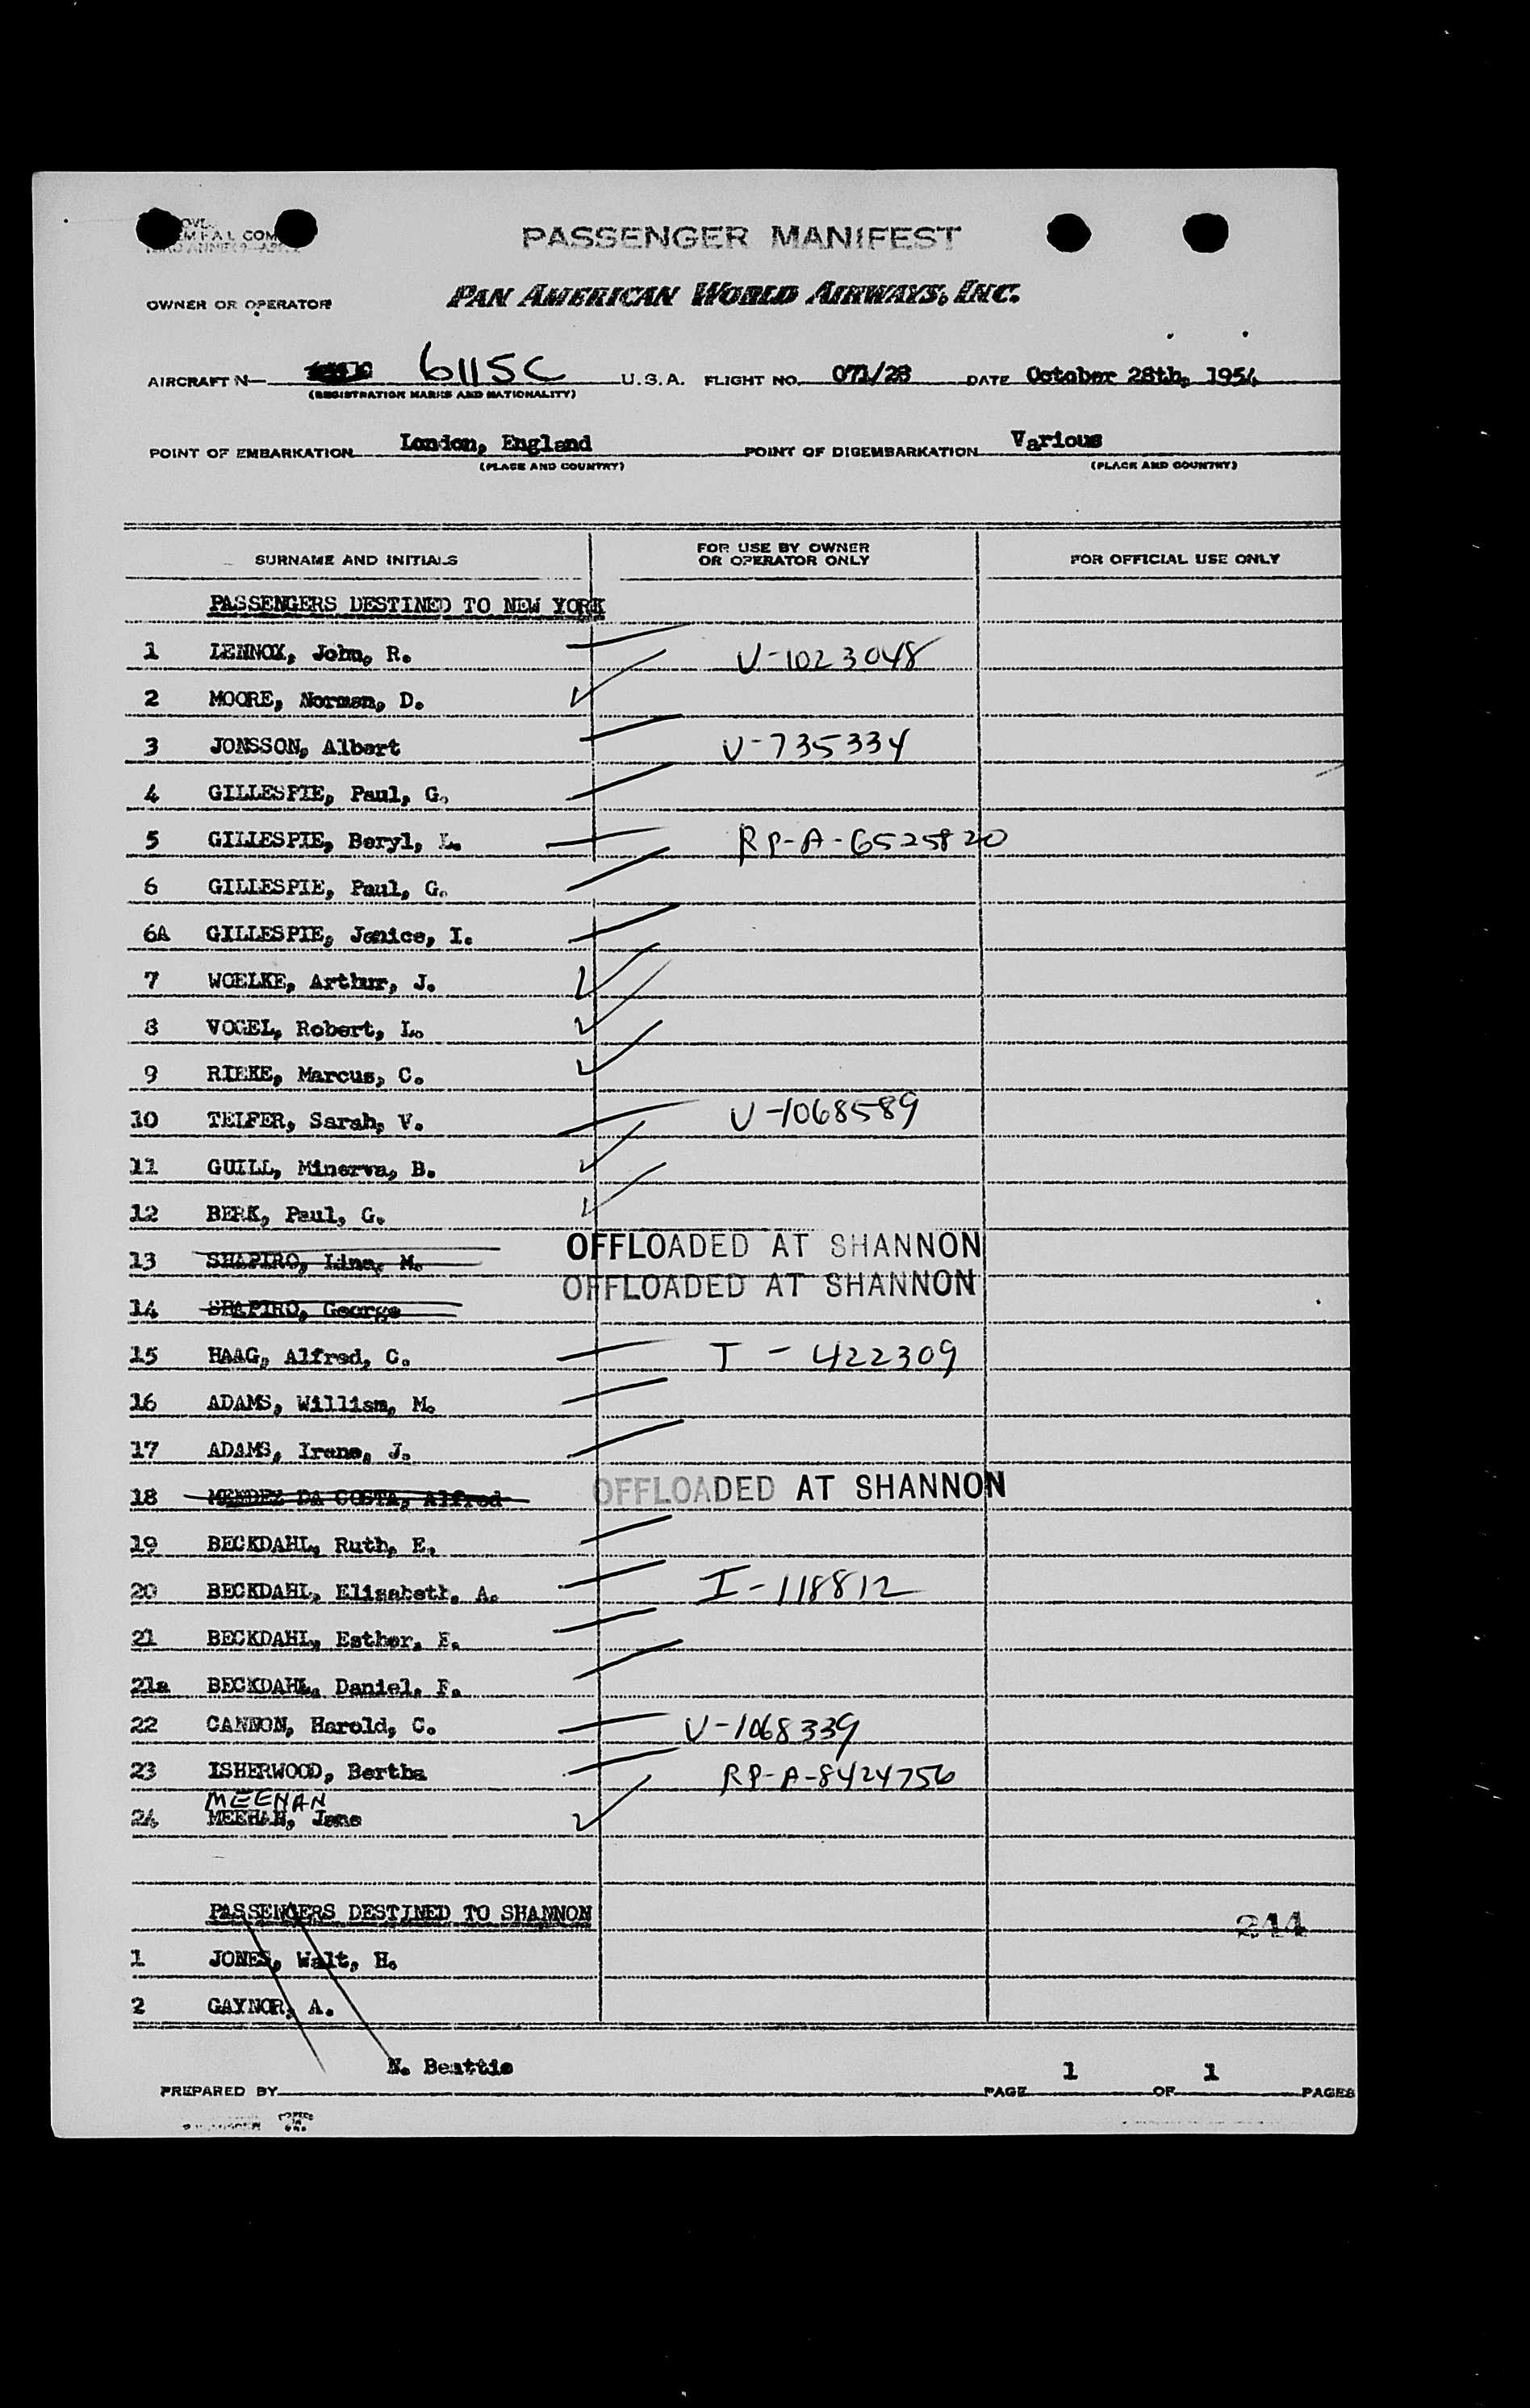 PASSENGER MANIFEST
OWNER OR OPERATOR PAN AMERICAN WORLD AIRWAYS, INC.
AIRCRAFT N— 6115C U.S.A. FLIGHT NO. 071/28 DATE October 28th, 1954
(REGISTRATION MARKS AND NATIONALITY)
POINT OF EMBARKATION London, England POINT OF DISEMBARKATION Various
(PLACE AND COUNTRY) (PLACE AND COUNTRY)
SURNAME AND INITIALS FOR USE BY OWNER OR OPERATOR ONLY FOR OFFICIAL USE ONLY
PASSENGERS DESTINED TO NEW YORK
1 LENNOX, John, R. V-1023048
2 MOORE, Norman, D.
3 JONSSON, Albert V-735334
4 GILLESPIE, Paul, G.
5 GILLESPIE, Beryl, L. RP-A-6525820
6 GILLESPIE, Paul, G.
6A GILLESPIE, Janice, I.
7 WOELKE, Arthur, J.
8 VOGEL, Robert, L.
9 RIEKE, Marcus, C.
10 TELFER, Sarah, V. V-1068589
11 GUILL, Minerva, B.
12 BERK, Paul, G.
13 SHAPIRO, Lina, M. OFFLOADED AT SHANNON
14 SHAPIRO, George OFFLOADED AT SHANNON
15 HAAG, Alfred, C. I - 422309
16 ADAMS, William, M.
17 ADAMS, Irene, J.
18 MENDEZ DA COSTA, Alfred OFFLOADED AT SHANNON
19 BECKDAHL, Ruth, E.
20 BECKDAHL, Elizabeth, A. I-118812
21 BECKDAHL, Esther, E.
21a BECKDAHL, Daniel, F.
22 CANNON, Harold, C. V-1068339
23 ISHERWOOD, Bertha RP-A-8424756
MEENAN
24 MEEHAN, Jane
PASSENGERS DESTINED TO SHANNON
244
1 JONES, Walt, H.
2 GAYNOR, A.
PREPARED BY N. Beattie PAGE 1 OF 1 PAGES